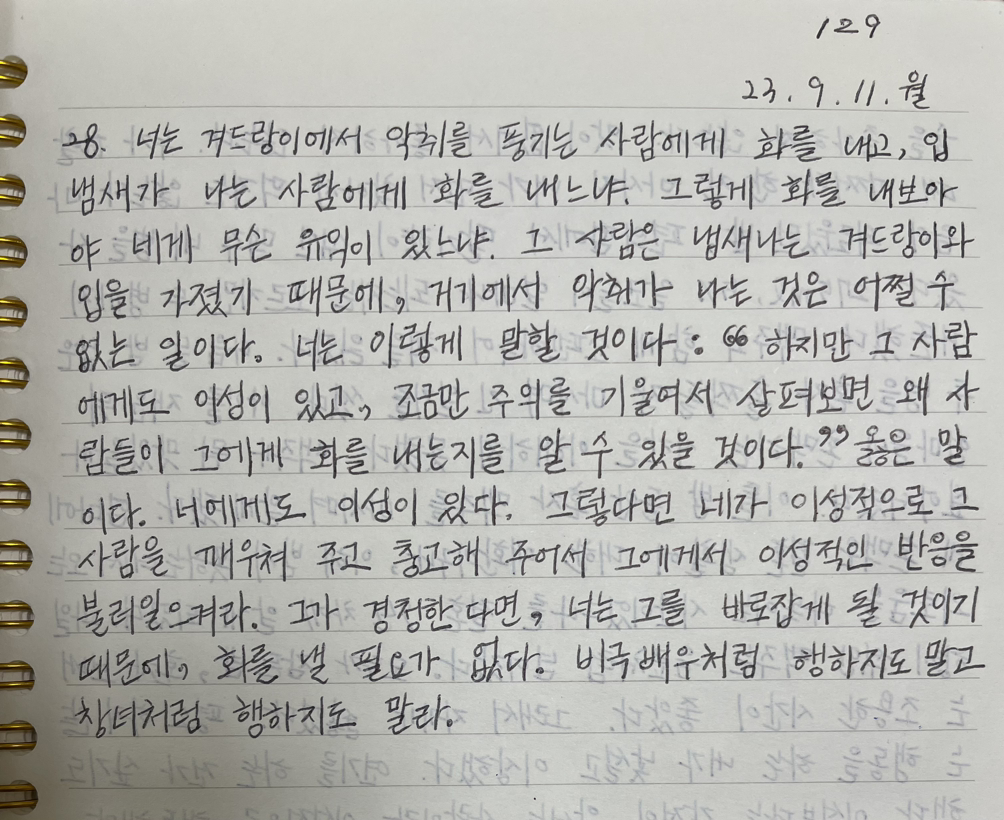 129
23. 9. 11. 월
28. 너는 겨드랑이에서 악취를 풍기는 사람에게 화를 내고, 입
냄새가 나는 사람에게 화를 내느냐. 그렇게 화를 내보아
야 네게 무슨 유익이 있느냐. 그 사람은 냄새나는 겨드랑이와
입을 가졌기 때문에, 거기에서 악취가 나는 것은 어쩔 수
없는 일이다. 너는 이렇게 말할 것이다: “하지만 그 사람
에게도 이성이 있고, 조금만 주의를 기울여서 살펴보면 왜 사
람들이 그에게 화를 내는지를 알 수 있을 것이다.” 옳은 말
이다. 너에게도 이성이 있다. 그렇다면 네가 이성적으로 그
사람을 깨우쳐 주고 충고해 주어서 그에게서 이성적인 반응을
불러일으켜라. 그가 경청한다면, 너는 그를 바로잡게 될 것이기
때문에, 화를 낼 필요가 없다. 비극배우처럼 행하지도 말고
창녀처럼 행하지도 말라.